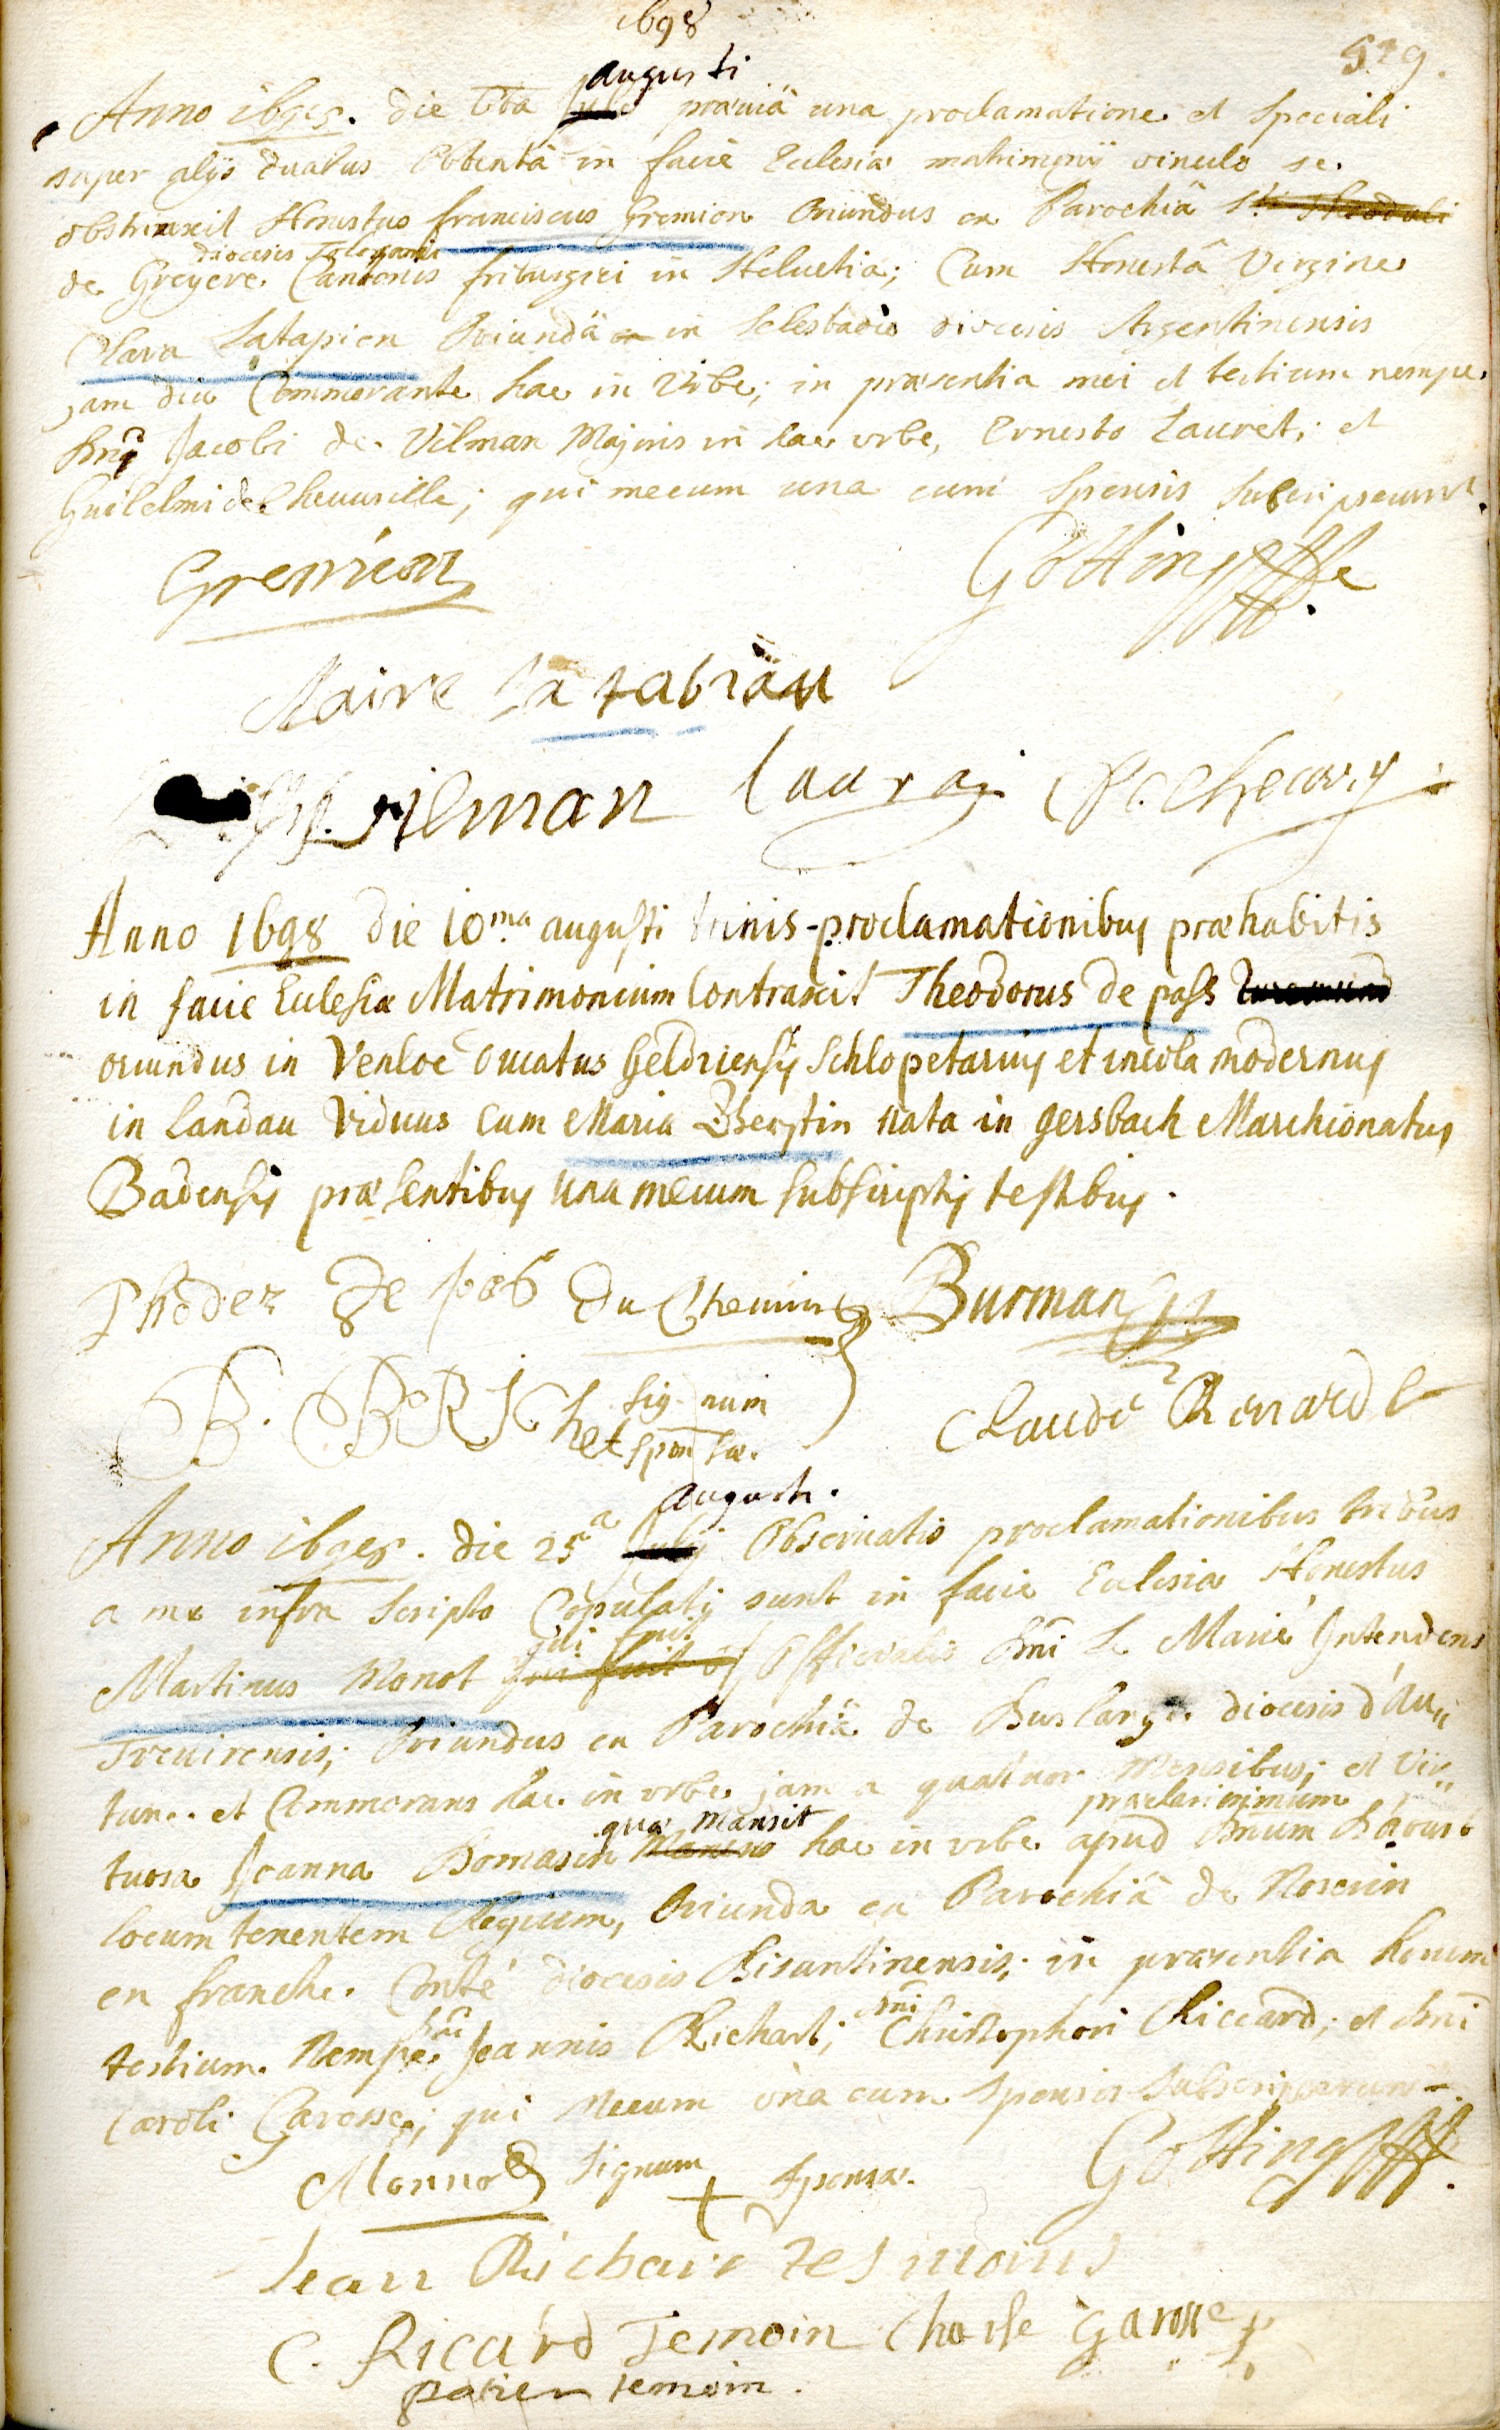 1698
529.
augusti
Anno 1698. die 6ta July præviâ una proclamatione et speciali
super alijs duabus obtentâ in facie Eclesiæ matrimonij vinculo se
obstrinxit Honestus franciscus Gremion Oriundus ex Parochiâ Sti Theoduli
diocesis
de Greyere Cantonis friburgici in Helvetia; Cum Honestâ Virgine
Clara Latapien Oriundâ in Selestadio diocesis Argentinensis
jam diu Commorante hac in Urbe; in præsentia mei et testium nempe
Dni Jacobi de Vilman Majoris in hac urbe, Ernesto Lauret; et
Guilelmi de Cheuurille; qui mecum una cum sponsis subscripserunt.
Gremion
Gotting
Klaire la tabiau
vilman Lauray
Anno 1698 die 10ma augusti trinis proclamationibus præhabitis
in facie Eclesiæ Matrimonium Contraxit Theodorus de pass
oriundus in Venloe ducatus Geldriensis Schlopetarius et incola modernus
in Landau Viduus cum Maria nata in gersbach Marchionatus
Badensis præsentibus una mecum subscriptis testibus.
Thoder de pas du Chemin Burman
B. BERIC het signum sponsæ.
Claude Renard
augusti.
Anno 1698. die 25a July Observatis proclamationibus tribus
a me infra scripto Copulati sunt in facie Eclesiæ Honestus
qui fuit
Martinus Monot qui fuit Officialis Dni Le Marié Intendens
Trevirensis; Oriundus ex Parochiâ de diocesis d'Au,,
tun.. et Commorans hac in urbe jam a quatuor Mensibus; et Vir,,
quæ Mansit
præclarissimum
tuosa Joanna Bomasin hac in urbe apud Dnum
locum tenentem Regium, Oriunda ex Parochiâ de Noseroin
en franche. Conté diocesis Bisuntinensis; in præsentia horum
Dni
Dni
testium. Nempe Joannis Richart; Christophori Riccard; et Dni
Caroli Garosse; qui Mecum una cum sponsis subscripserunt.
Monnot signum + sponsæ.
Gotting
Jean Richair tesmoins
C. Ricard Temoin Charle Garosse
temoin.